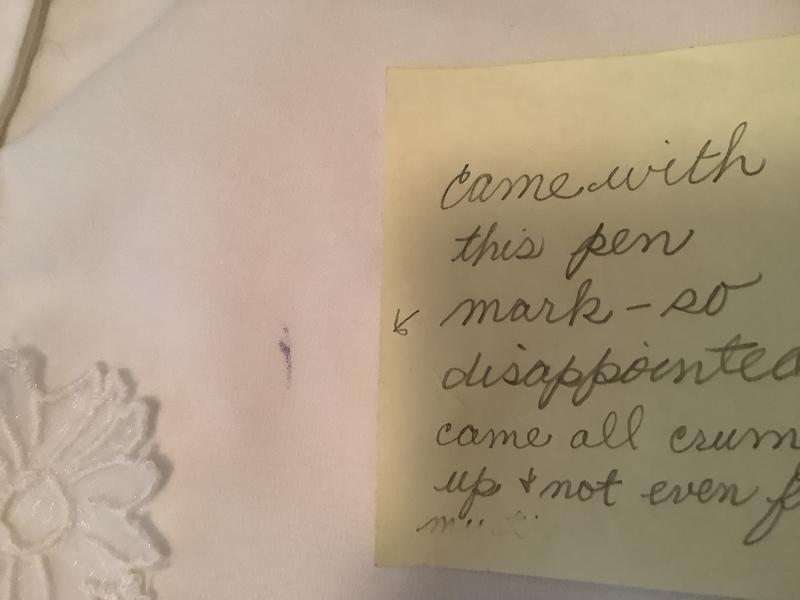 came with
this pen
mark - so
disappointed
came all crum
up + not even f